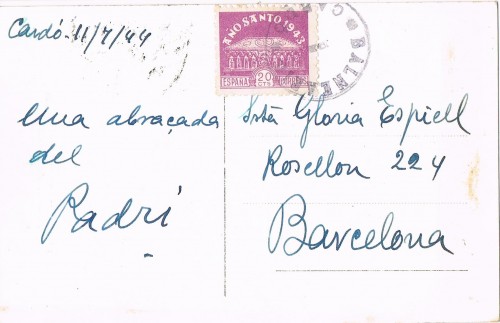 Cardó - 11/7/44
AÑO SANTO 1943
ESPAÑA 20 CTS
BALNEA
Una abraçada
del
Padrí
Srta Gloria Espiell
Rosellon 224
Barcelona